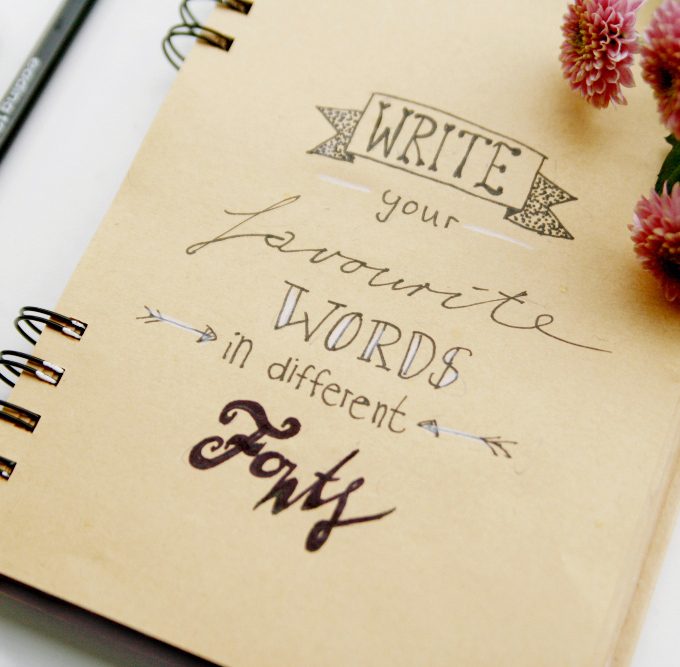 WRITE
your
favourite
WORDS
in different
Fonts